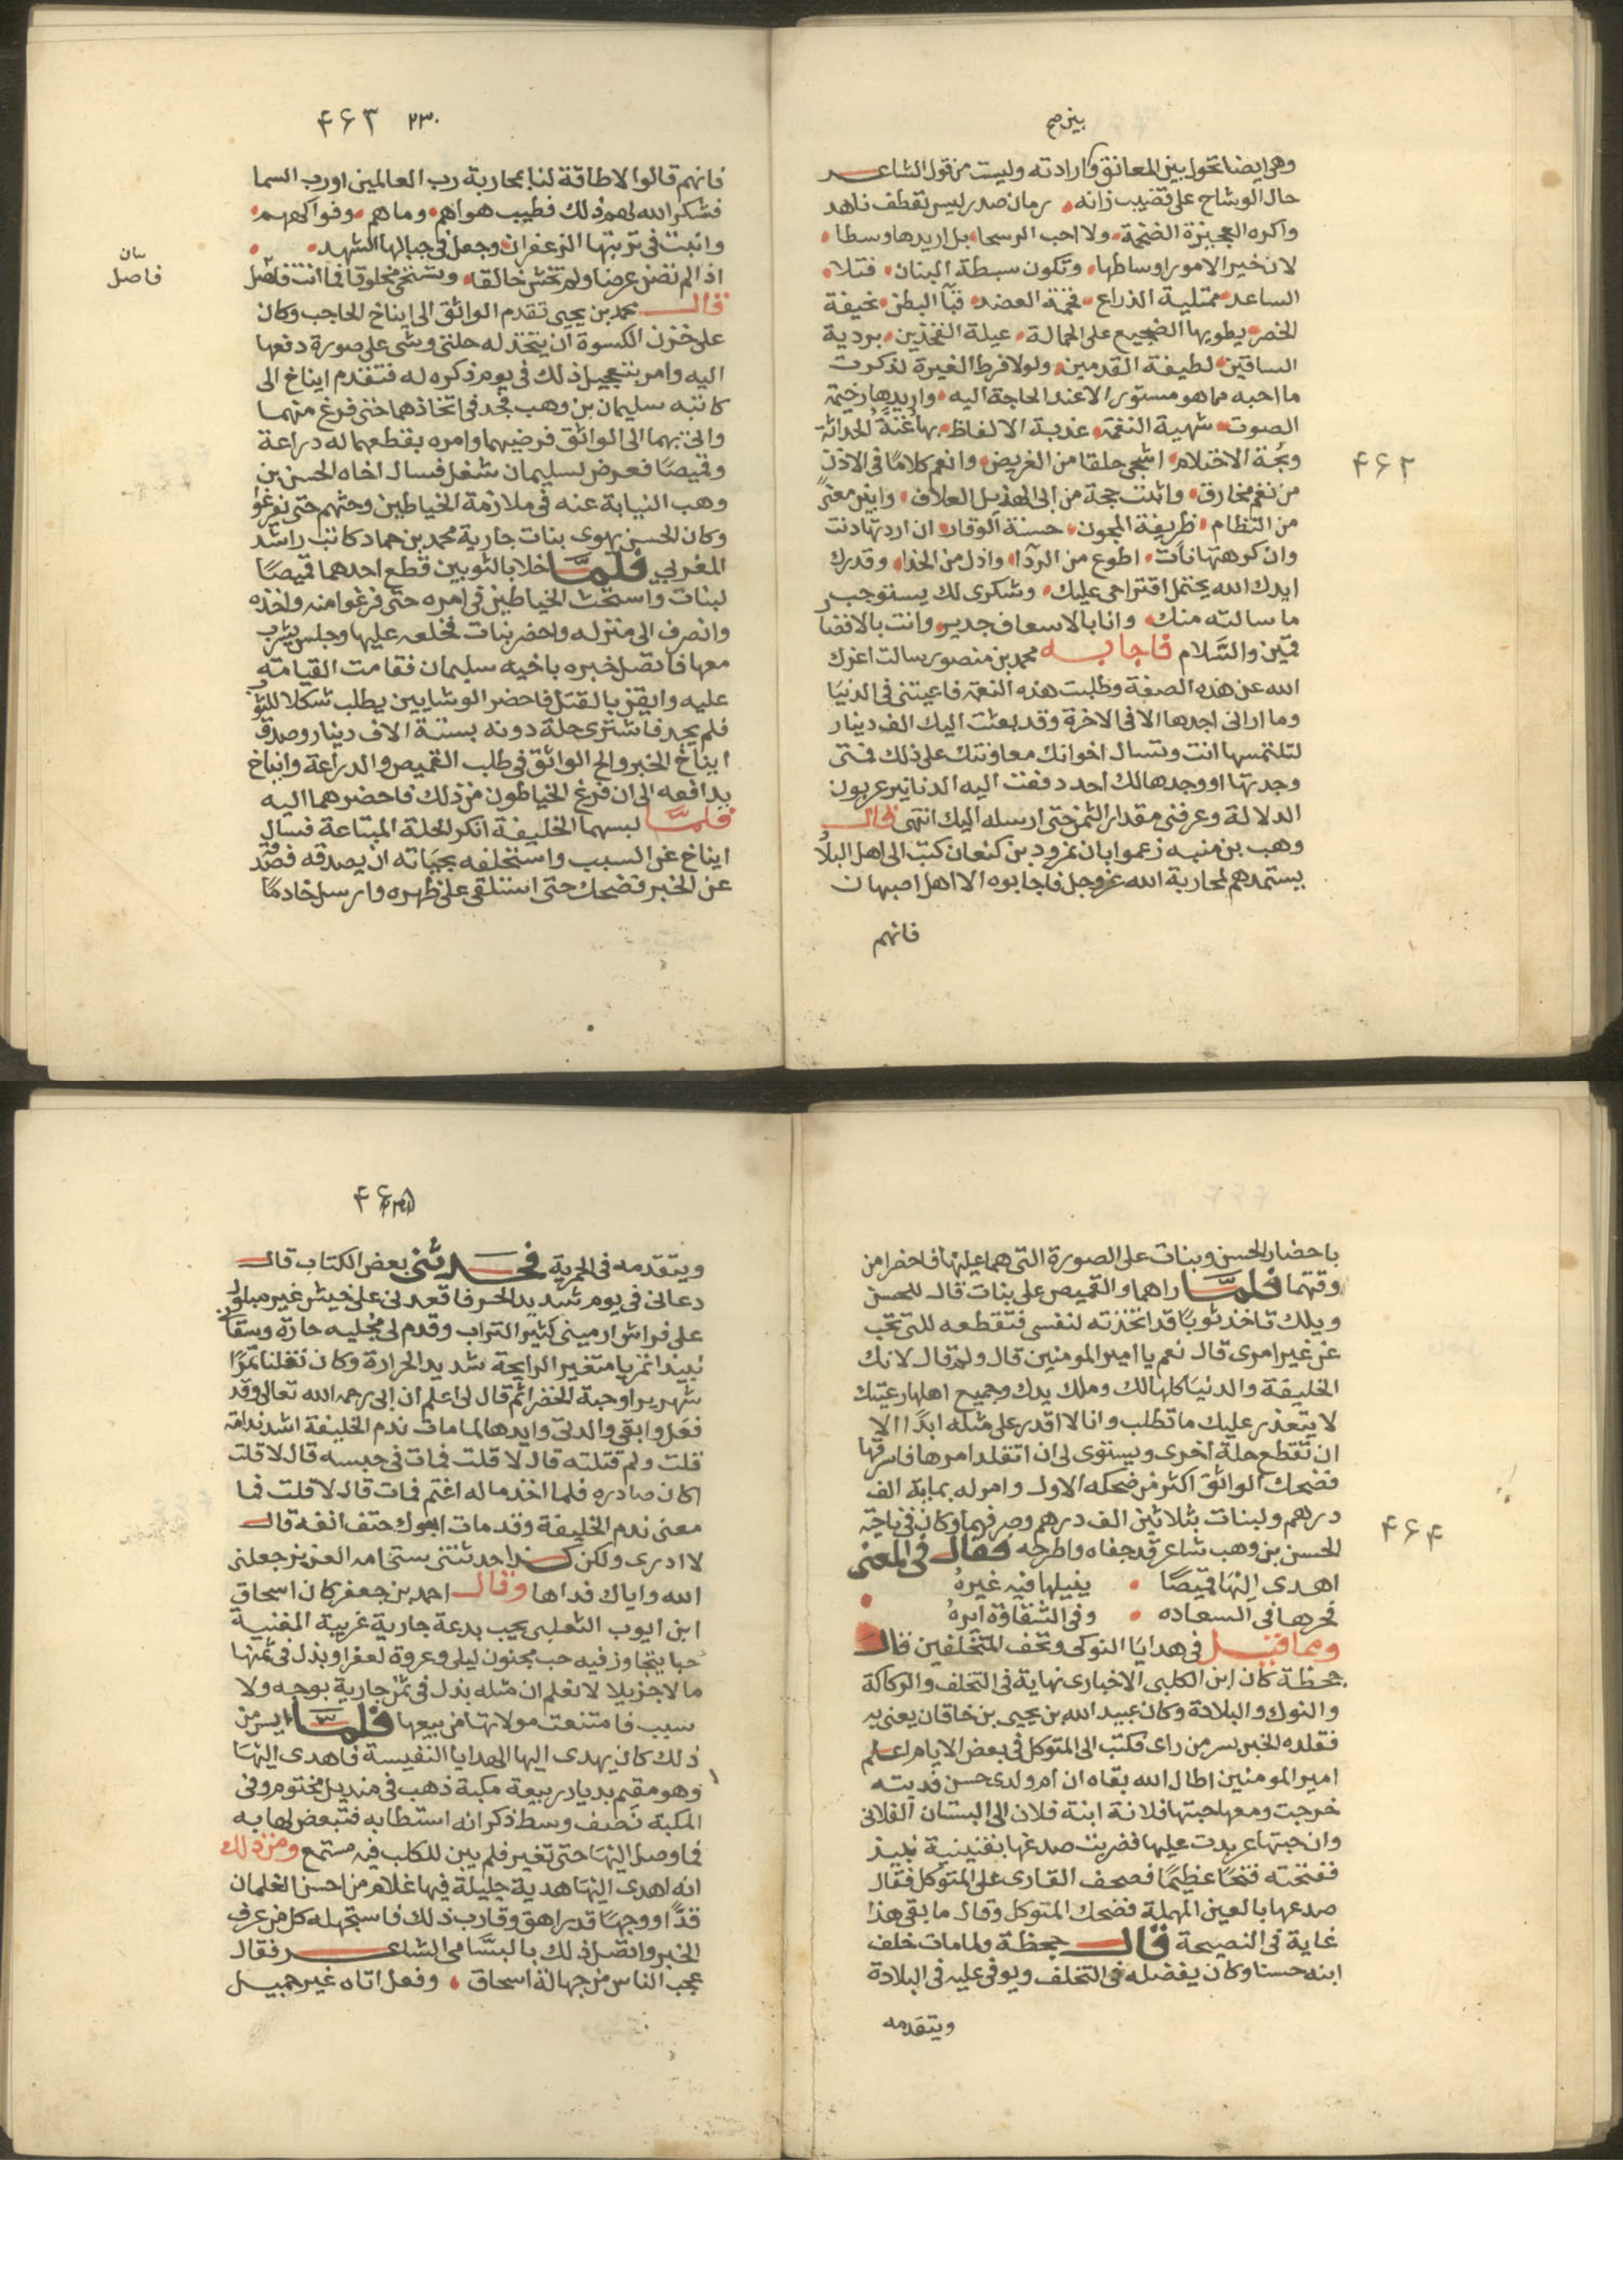 بين صح
وهي ايضا تحول بين المعانق وارادته وليست من قول الشاعر
حال الوشاح على قضيب زانه رمان صدر ليس يقطف ناهد
واكره العجيزة الضخمة ولا احب الرسحا بل اريدها وسطا
لان خير الامور اوساطها وتكون سبطة البنان فتلا
الساعد ممتلية الذراع فخمة العضد قبآ البطن نحيفة
الخصر يطويها الضجيع على الحمالة عبلة الفخذين بردية
الساقين لطيفة القدمين ولولا فرط الغيرة لذكرت
ما احبه مما هو مستور الا عند الحاجة اليه واريدها رخيمة
الصوت شهية النغمة عذبة الالفاظ بها غنة الحداثة
وبحة الاحتلام اشجى حلقا من الغريض وانعم كلاما في الاذن
من نغم مخارق واثبت حجة من ابى الهذيل العلاف وابين معنى
من النظام ظريفة المجون حسنة الوقار ان اردتها دنت
وان كرهتها نات اطوع من الردآ واذل من الحذا وقدرك
ايدك الله يحتمل اقتراحى عليك وشكرى لك يستوجب
ما سالته منك وانا بالاسعاف جدير وانت بالافضا
قمين والسلام فاجابه محمد بن منصور سالت اعزك
الله عن هذه الصفة وطلبت هذه النعمة فاعيتنى في الدنيا
وما ارانى اجدها الا فى الاخرة وقد بعثت اليك الف دينار
لتلتمسها انت وتسال اخوانك معاونتك على ذلك فمتى
وجدتها او وجدها لك احد دفعت اليه الدنانير عربون
الدلالة وعرفنى مقدار الثمن حتى ارسله اليك انتهى قال
وهب بن منبه زعموا بان نمرود بن كنعان كتب الى اهل البلا
يستمدهم لمحاربة الله عز وجل فاجابوه الا اهل اصبهان
فانهم
۴۶۲
۲۳۰ ۴۶۳
فانهم قالوا لا طاقة لنا بمحاربة رب العالمين او رب السما
فشكر الله لهم ذلك فطيب هواهم وماهم وفواكههم
وانبت فى تربتها الزعفران وجعل فى جبالها الشهد
اذا لم تصن عرضا ولم تخش خالقا وتستحى مخلوقا فما انت فاضل
سان
فاصل
قال محمد بن يحيى تقدم الواثق الى ايتاخ الحاجب وكان
على خزن الكسوة ان يتخذ له حلتى وشى على صورة دفعها
اليه وامر بتعجيل ذلك فى يوم ذكره له فتقدم ايتاخ الى
كاتبه سليمان بن وهب فجد فى اتخاذهما حتى فرغ منهما
واتى بهما الى الواثق فرضيهما وامره بقطعهما له دراعة
وقميصا فعرض لسليمان شغل فسال اخاه الحسن بن
وهب النيابة عنه في ملازمة الخياطين وحثهم حتى يفرغوا
وكان الحسن يهوى بنات جارية محمد بن حماد كاتب راشد
المغربى فلما خلا بالثوبين قطع احدهما قميصا
لبنات واستحث الخياطين في امره حتى فرغوا منه واخذه
وانصرف الى منزله واحضر بنات فخلعه عليها وجلس يشرب
معها فاتصل خبره باخيه سليمان فقامت القيامة
عليه وايقن بالقتل فاحضر الوشايين يطلب شكلا للثو
فلم يجد فاشترى حلة دونه بستة الاف دينار وصدق
ايتاخ الخبر والح الواثق فى طلب القميص والدراعة وايتاخ
يدافعه الى ان فرغ الخياطون من ذلك فاحضرهما اليه
فلما لبسهما الخليفة انكر الحلة المبتاعة فسال
ايتاخ عن السبب واستحلفه بحياته ان يصدقه فصدقه
عن الخبر فضحك حتى استلقى على ظهره وارسل خادما
باحضار الحسن وبنات على الصورة التى هما عليها فاحضرا من
وقتهما فلما راهما والقميص على بنات قال للحسن
ويلك تاخذ ثوبا قد اتخذته لنفسى فتقطعه للتى تحب
عن غير امرى قال نعم يا امير المومنين قال ولم قال لانك
الخليفة والدنيا كلها لك وملك يدك وجميع اهلها رعيتك
لا يتعذر عليك ما تطلب وانا لا اقدر على مثله ابدا الا
ان تقطع حلة اخرى ويستوى لى ان اتقلد امرها فاسرقها
فضحك الواثق اكثر من ضحكه الاول وامر له بماية الف
درهم ولبنات بثلاثين الف درهم وصرفهما وكان في ناحية
الحسن بن وهب شاعر قد جفاه واطرحه فقال في المعنى
اهدى اليها قميصا ينيلها فيه غيره
فحرها فى السعاده وفى الشقاوة ايره
ومما قيل في هدايا النوكى وتحف المتخلفين قال
جحظة كان ابن الكلبى الاخبارى نهاية فى التخلف والركاكة
والنوك والبلادة وكان عبيد الله بن يحيى بن خاقان يعنى به
فقلده الخبر بسر من راى فكتب الى المتوكل فى بعض الايام اعلم
امير المومنين اطال الله بقاه ان ام ولدى حسن فديته
خرجت ومعها حبتها فلانة ابنة فلان الى البستان الفلانى
وان حبتها عربدت عليها فضربت صدغها بقنينية نبيذ
ففتحته فتحا عظيما فصحف القارى على المتوكل فقال
صدعها بالعين المهملة فضحك المتوكل وقال ما بقى هذا
غاية فى النصيحة قال جحظة ولما مات خلف
ابنه حسنا وكان يفضله فى التخلف ويوفى عليه فى البلادة
ويتقدمه
۴۶۴
ويتقدمه فى الحرية فحدثنى بعض الكتاب قال
دعانى في يوم شديد الحر فاقعدنى على خيش غير مبلول
على فراش ارمينى كثير التراب وقدم لى مجليه حارة وسقا
نبيذا تمريا متغير الرايحة شديد الحرارة وكان نقلنا تمرا
شهريرا وحبة الخضرا ثم قال لى اعلم ان ابى رحمه الله تعالى وقد
فعل وابقى والدتى وايدها لما مات ندم الخليفة اشد ندامة
قلت ولم قتلته قال لا قلت فمات فى حبسه قال لا قلت
اكان صادره فلما اخذ ماله اغتم فمات قال لا قلت فما
معنى ندم الخليفة وقد مات ابوك حتف انفه قال
لا ادرى ولكن كذا حدثتنى ستى امه العزيز جعلنى
الله واياك فداها وقال احمد بن جعفر كان اسحاق
ابن ايوب التعلبى يحب بدعة جارية غريبة المغنية
حبا يتجاوز فيه حب مجنون ليلى وعروة لعفرا وبذل فى ثمنها
مالا جزيلا لا نعلم ان مثله بذل فى ثمن جارية بوجه ولا
سبب فامتنعت مولاتها من بيعها فلما ايس من
ذلك كان يهدى اليها الهدايا النفيسة فاهدى اليها
وهو مقيم بديار ربيعة مكبة ذهب فى منديل مختوم وفى
المكبة نصف وسط ذكر انه استطابه فتبعض لها به
فما وصل اليها حتى تغير فلم يبن للكلب فيه مستمتع ومن ذلك
انه اهدى اليها هدية جليلة فيها غلام من احسن الغلمان
قدا ووجها قد راهق وقارب ذلك فاستجهله كل من عرف
الخبر واتصل ذلك بالبسامى الشاعر فقال
عجب الناس من جهالة اسحاق وفعل اتاه غير جميل